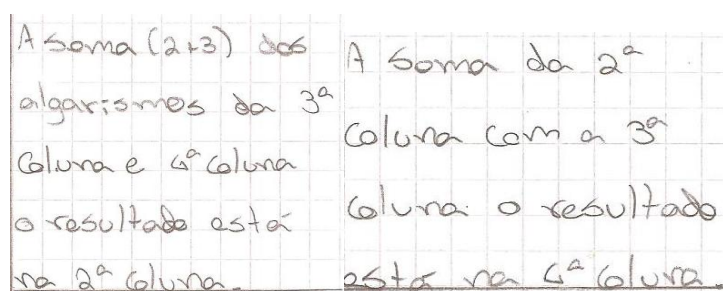 A soma (2+3) dos
algarismos da 3ª
coluna e 4ª coluna
o resultado está
na 2ª coluna.
A soma da 2ª
coluna com a 3ª
coluna o resultado
está na 4ª coluna.